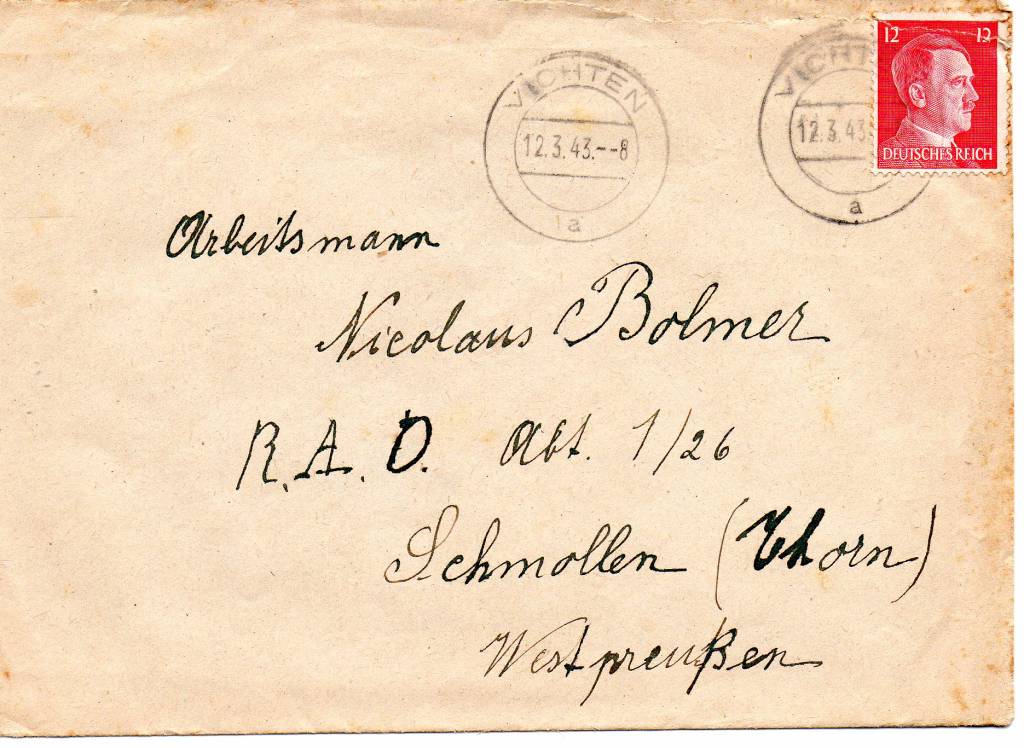 VICHTEN
12.3.43.--8
a
VICHT
12.3.43
a
12 12
DEUTSCHES REICH
Arbeitsmann
Nicolaus Bolmer
R.A.D. Abt. 1/26
Schmollen (Thorn)
Westpreußen